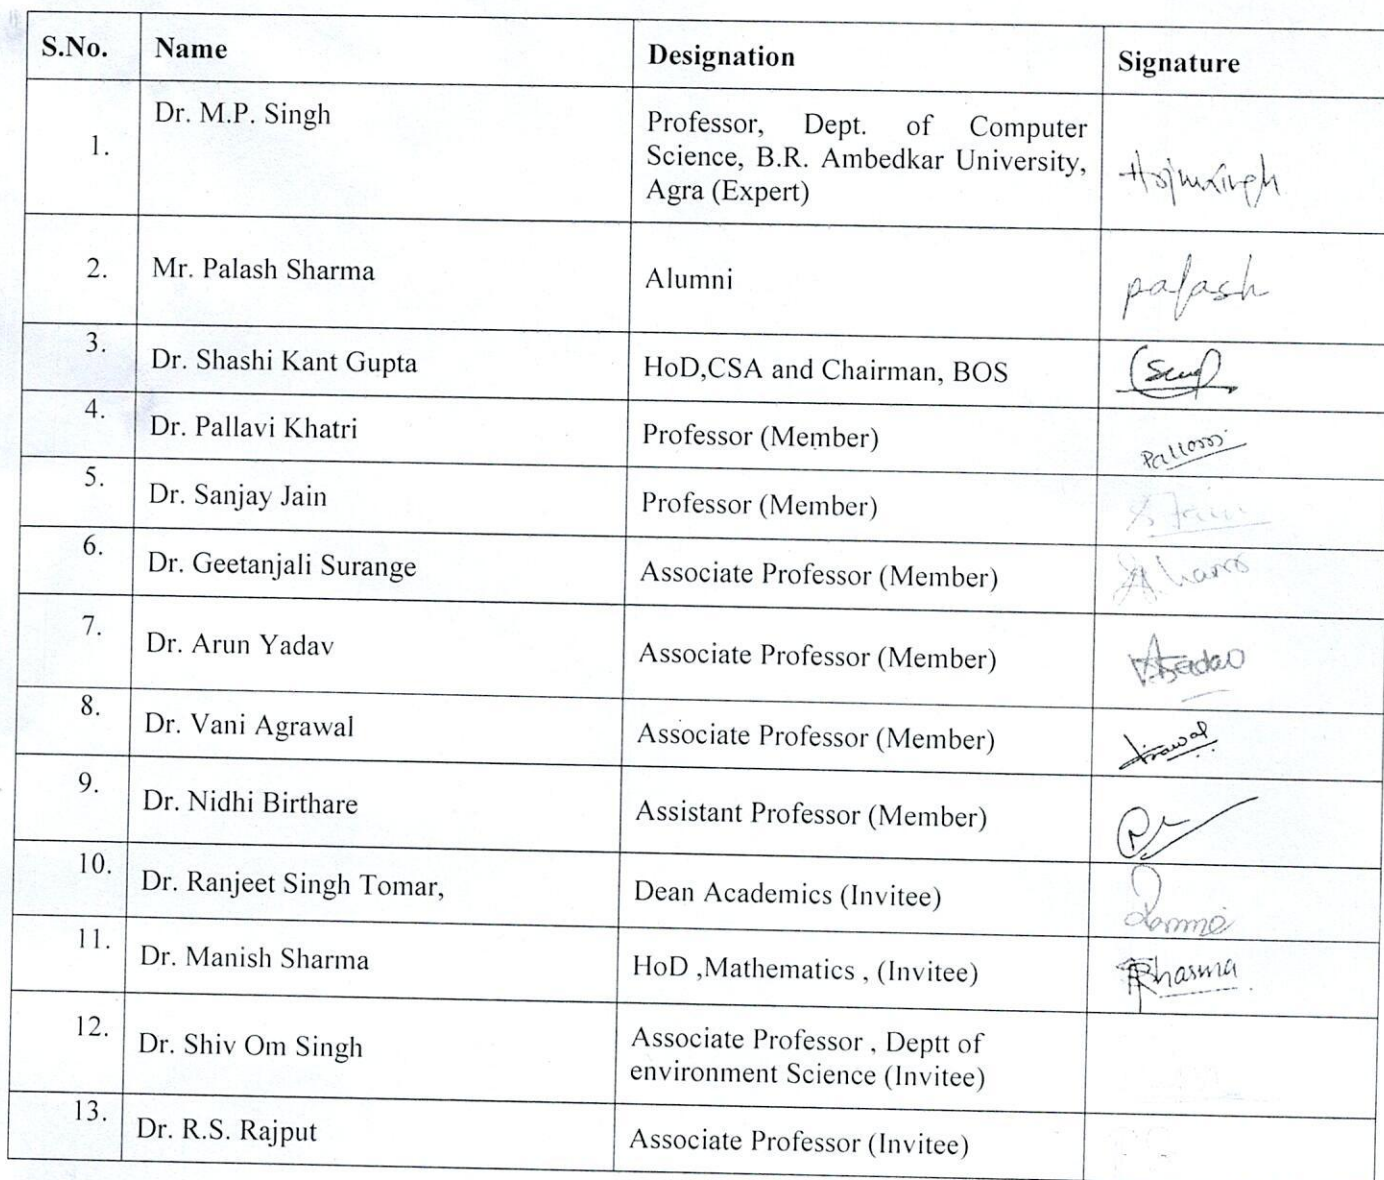 S.No. Name Designation Signature
1. Dr. M.P. Singh Professor, Dept. of Computer
Science, B.R. Ambedkar University,
Agra (Expert)
2. Mr. Palash Sharma Alumni palash
3. Dr. Shashi Kant Gupta HoD,CSA and Chairman, BOS
4. Dr. Pallavi Khatri Professor (Member)
5. Dr. Sanjay Jain Professor (Member) S Jain
6. Dr. Geetanjali Surange Associate Professor (Member)
7. Dr. Arun Yadav Associate Professor (Member)
8. Dr. Vani Agrawal Associate Professor (Member)
9. Dr. Nidhi Birthare Assistant Professor (Member)
10. Dr. Ranjeet Singh Tomar, Dean Academics (Invitee)
11. Dr. Manish Sharma HoD ,Mathematics , (Invitee)
12. Dr. Shiv Om Singh Associate Professor , Deptt of
environment Science (Invitee)
13. Dr. R.S. Rajput Associate Professor (Invitee)